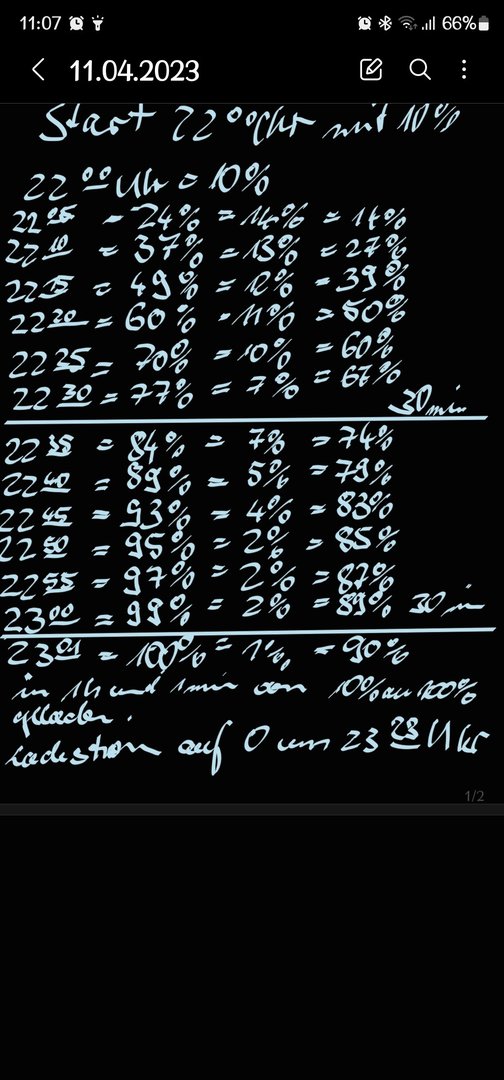 11:07 66%
11.04.2023
Start 22 00 Uhr mit 10%
22 00 Uhr = 10%
22 05 = 24% = 14% = 14%
22 10 = 37% = 13% = 27%
22 15 = 49% = 12% = 39%
22 20 = 60% = 11% = 50%
22 25 = 70% = 10% = 60%
22 30 = 77% = 7% = 67%
30 min
22 35 = 84% = 7% = 74%
22 40 = 89% = 5% = 79%
22 45 = 93% = 4% = 83%
22 50 = 95% = 2% = 85%
22 55 = 97% = 2% = 87%
23 00 = 99% = 2% = 89% 30 min
23 01 = 100% = 1% = 90%
in 1h und 1min von 10% auf 100%
geladen.
Ladestrom auf 0 um 23 23 Uhr
1/2